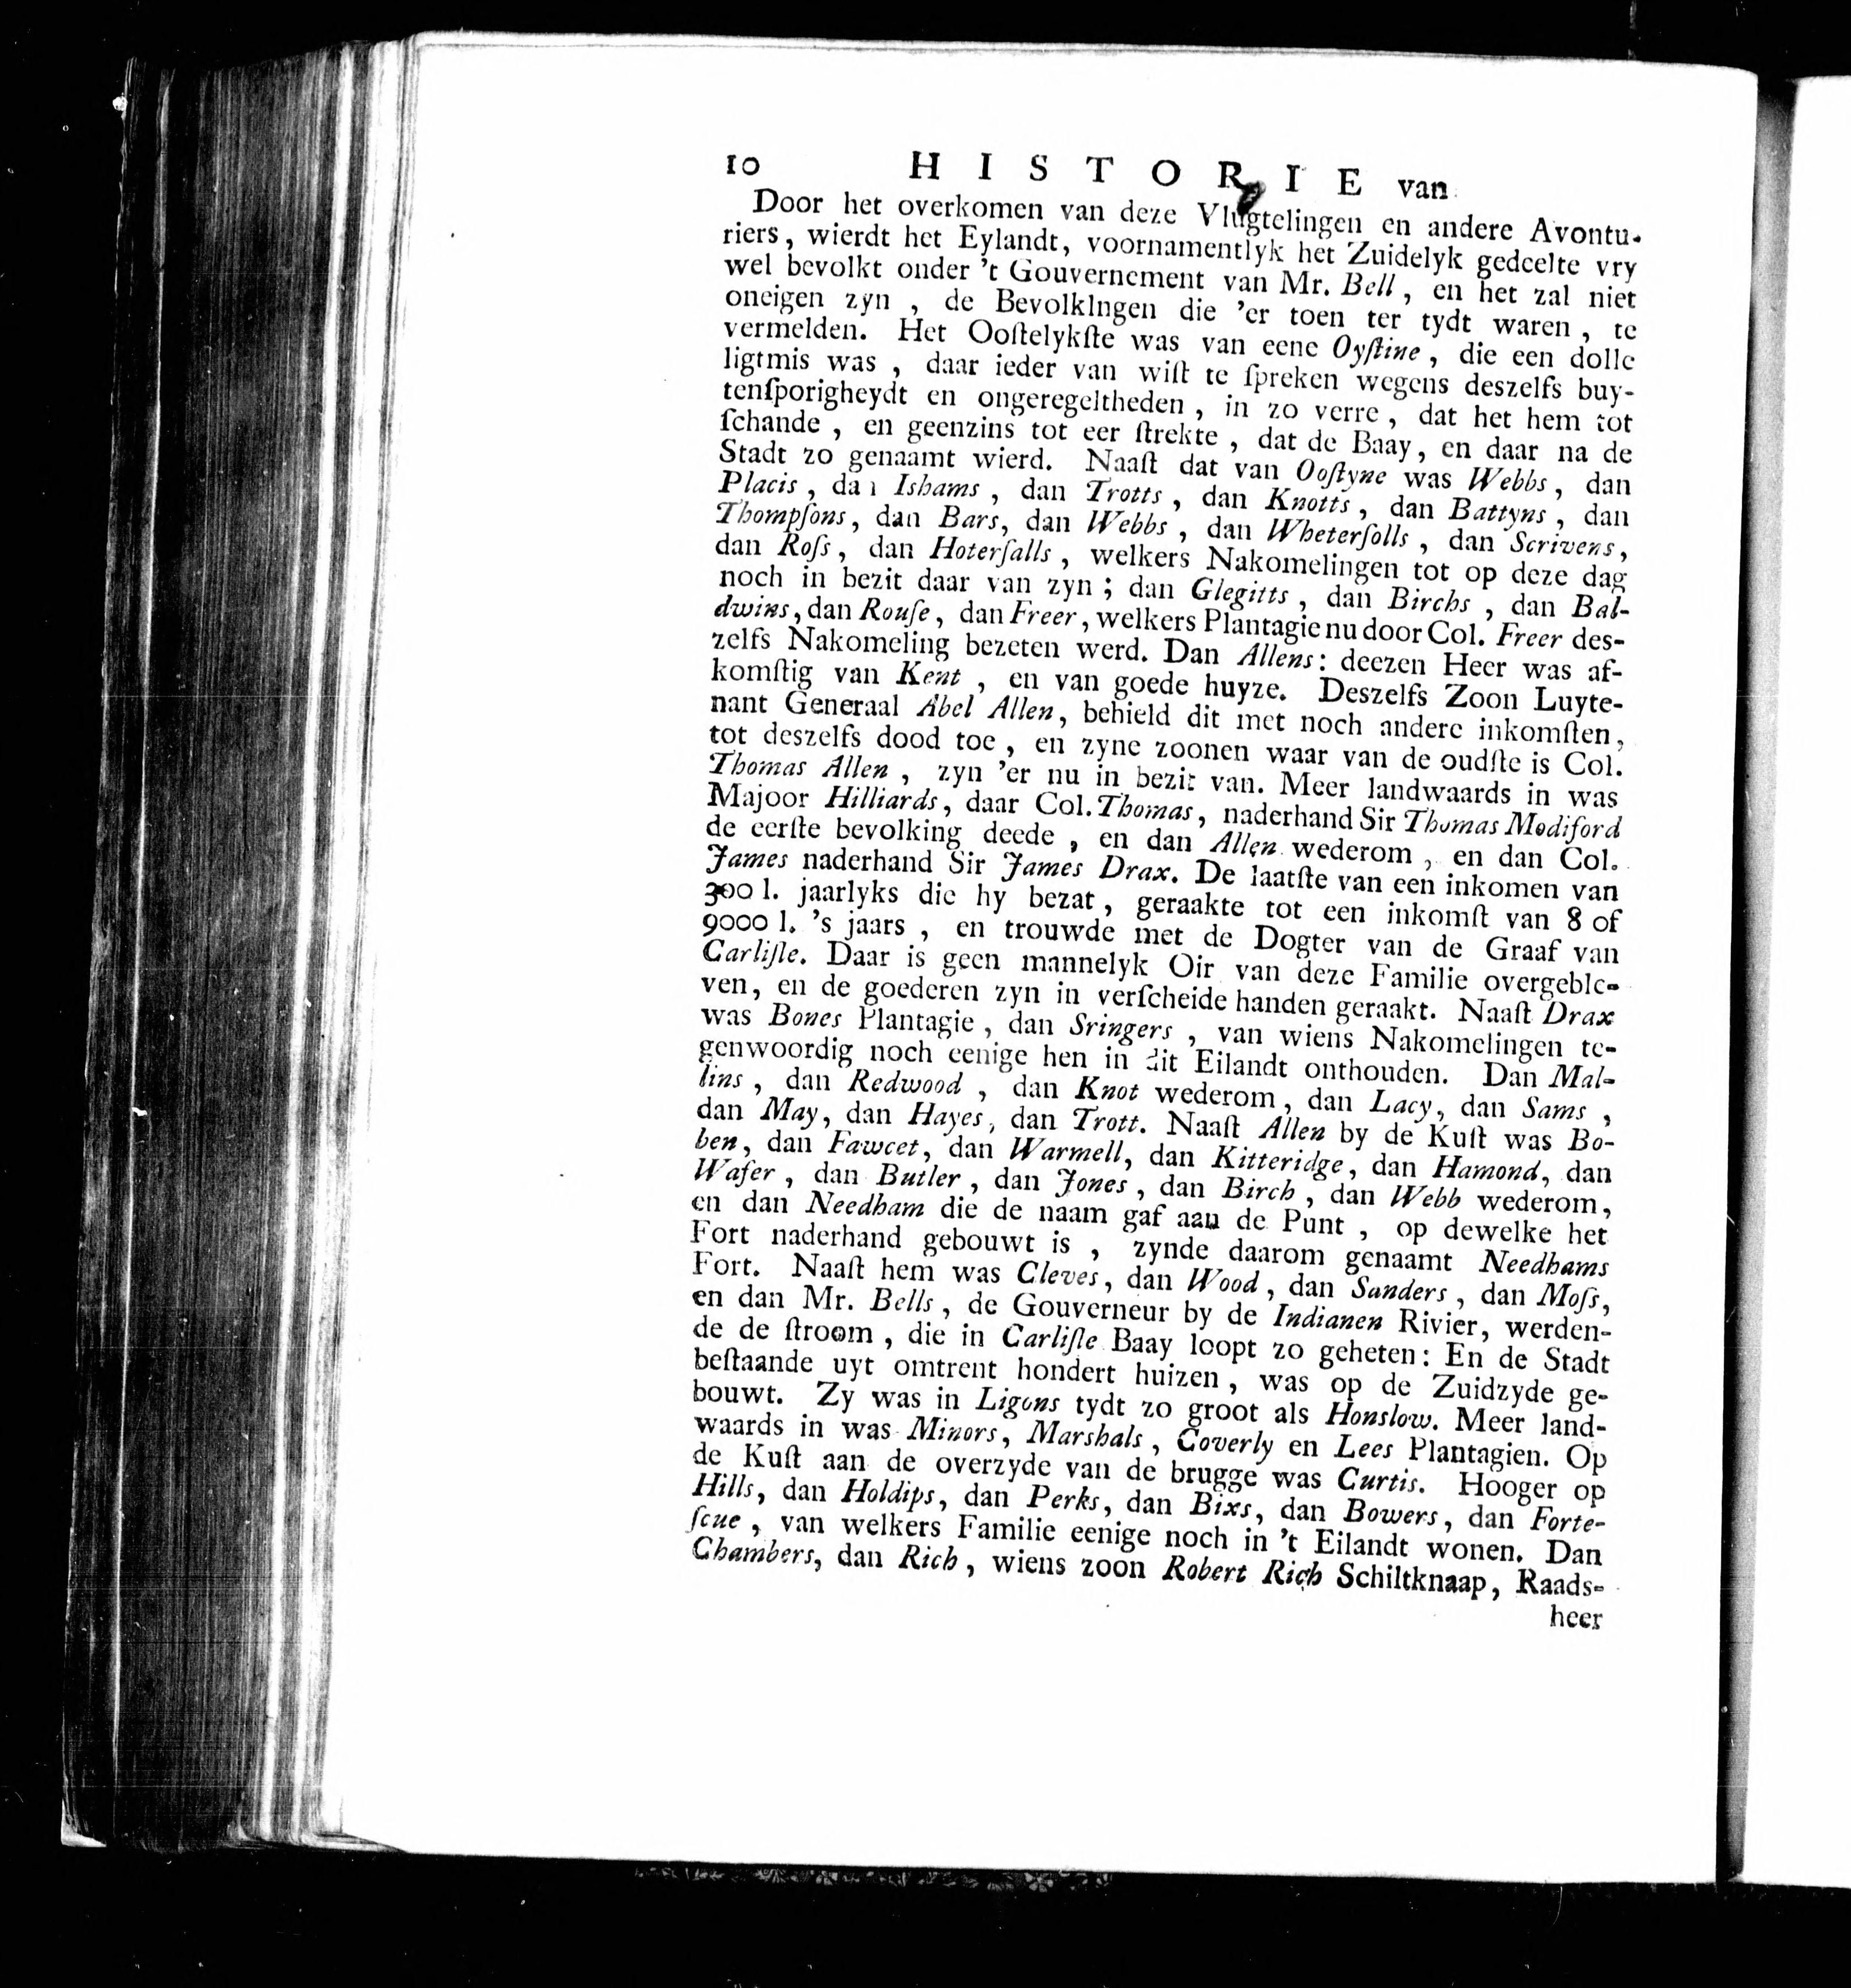 10 HISTORIE van
Door het overkomen van deze Vlugtelingen en andere Avontu-
riers, wierdt het Eylandt, voornamentlyk het Zuidelyk gedeelte vry
wel bevolkt onder 't Gouvernement van Mr. Bell, en het zal niet
oneigen zyn, de Bevolkingen die 'er toen ter tydt waren, te
vermelden. Het Ooſtelykſte was van eene Oyſtine, die een dolle
ligtmis was, daar ieder van wiſt te ſpreken wegens deszelfs buy-
tenſporigheydt en ongeregeltheden, in zo verre, dat het hem tot
ſchande, en geenzins tot eer ſtrekte, dat de Baay, en daar na de
Stadt zo genaamt wierd. Naaſt dat van Ooſtyne was Webbs, dan
Placis, dan Ishams, dan Trotts, dan Knotts, dan Battyns, dan
Thompſons, dan Bars, dan Webbs, dan Wheterſolls, dan Scrivens,
dan Roſs, dan Hoterſalls, welkers Nakomelingen tot op deze dag
noch in bezit daar van zyn; dan Glegitts, dan Birchs, dan Bal-
dwins, dan Rouſe, dan Freer, welkers Plantagie nu door Col. Freer des-
zelfs Nakomeling bezeten werd. Dan Allens: deezen Heer was af-
komſtig van Kent, en van goede huyze. Deszelfs Zoon Luyte-
nant Generaal Abel Allen, behield dit met noch andere inkomſten,
tot deszelfs dood toe, en zyne zoonen waar van de oudſte is Col.
Thomas Allen, zyn 'er nu in bezit van. Meer landwaards in was
Majoor Hilliards, daar Col. Thomas, naderhand Sir Thomas Modiford
de eerſte bevolking deede, en dan Allen wederom, en dan Col.
James naderhand Sir James Drax. De laatſte van een inkomen van
300 l. jaarlyks die hy bezat, geraakte tot een inkomſt van 8 of
9000 l. 's jaars, en trouwde met de Dogter van de Graaf van
Carliſle. Daar is geen mannelyk Oir van deze Familie overgeble-
ven, en de goederen zyn in verſcheide handen geraakt. Naaſt Drax
was Bones Plantagie, dan Sringers, van wiens Nakomelingen te-
genwoordig noch eenige hen in dit Eilandt onthouden. Dan Mal-
lins, dan Redwood, dan Knot wederom, dan Lacy, dan Sams,
dan May, dan Hayes, dan Trott. Naaſt Allen by de Kuſt was Bo-
ben, dan Fawcet, dan Warmell, dan Kitteridge, dan Hamond, dan
Wafer, dan Butler, dan Jones, dan Birch, dan Webb wederom,
en dan Needham die de naam gaf aan de Punt, op dewelke het
Fort naderhand gebouwt is, zynde daarom genaamt Needhams
Fort. Naaſt hem was Cleves, dan Wood, dan Sanders, dan Moſs,
en dan Mr. Bells, de Gouverneur by de Indianen Rivier, werden-
de de ſtroom, die in Carliſle Baay loopt zo geheten: En de Stadt
beſtaande uyt omtrent hondert huizen, was op de Zuidzyde ge-
bouwt. Zy was in Ligons tydt zo groot als Honslow. Meer land-
waards in was Minors, Marshals, Coverly en Lees Plantagien. Op
de Kuſt aan de overzyde van de brugge was Curtis. Hooger op
Hills, dan Holdips, dan Perks, dan Bixs, dan Bowers, dan Forte-
ſcue, van welkers Familie eenige noch in 't Eilandt wonen. Dan
Chambers, dan Rich, wiens zoon Robert Rich Schiltknaap, Raads-
heer